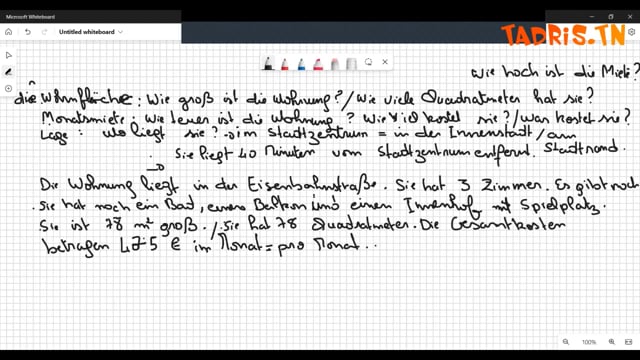 Microsoft Whiteboard
TADRIS.TN
Untitled whiteboard
Wie hoch ist die Miete?
die Wohnfläche: Wie groß ist die Wohnung? / Wie viele Quadratmeter hat sie?
Monatsmiete: Wie teuer ist die Wohnung? Wie viel kostet sie? / Was kostet sie?
Lage: Wo liegt sie? → im Stadtzentrum = in der Innenstadt / am Stadtrand.
→ Sie liegt 40 Minuten vom Stadtzentrum entfernt.
Die Wohnung liegt in der Eisenbahnstraße. Sie hat 3 Zimmer. Es gibt noch
Sie hat noch ein Bad, einen Balkon und einen Innenhof mit Spielplatz.
Sie ist 78 m² groß. / Sie hat 78 Quadratmeter. Die Gesamtkosten
betragen 475 € im Monat = pro Monat..
100%